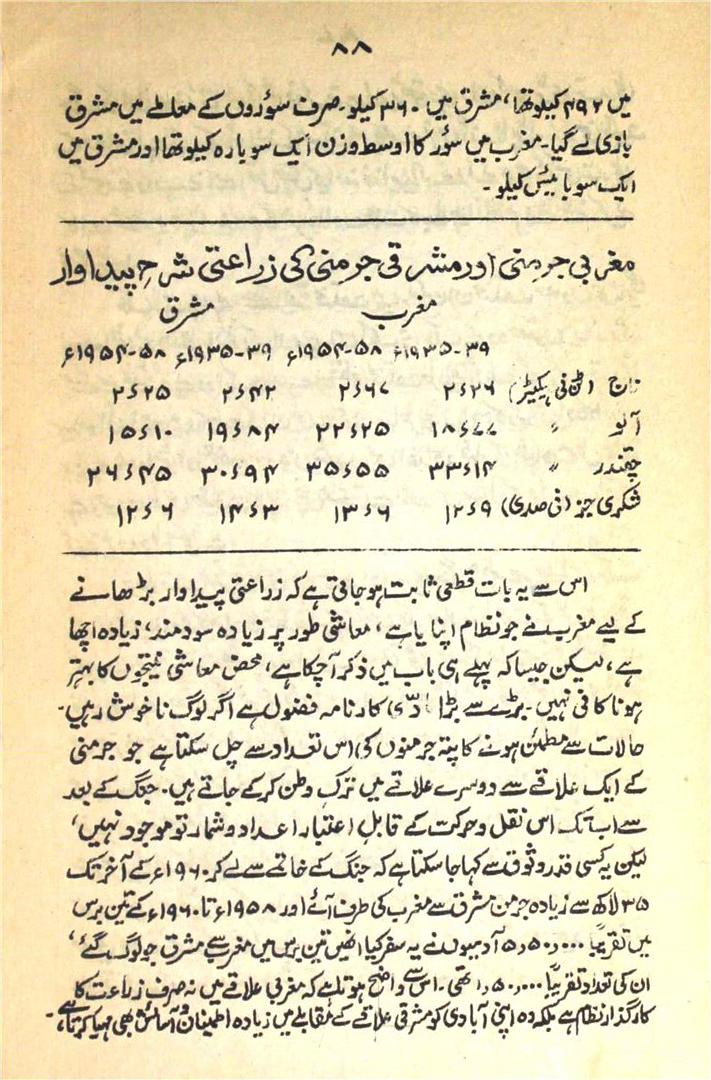 ۸۸
میں ۴۹۲ کیلو تھا، مشرق میں ۳۶۰ کیلو۔ صرف سؤروں کے معاملے میں مشرق
بازی لے گیا۔ مغرب میں سؤر کا اوسط وزن ایک سو بارہ کیلو تھا اور مشرق میں
ایک سو بائیس کیلو۔
مغربی جرمنی اور مشرقی جرمنی کی زراعتی شرح پیداوار
مغرب مشرق
۱۹۳۵-۳۹ء ۱۹۵۴-۵۸ء ۱۹۳۵-۳۹ء ۱۹۵۴-۵۸ء
ناج (ٹن فی ہیکٹر) ۲ء۲۶ ۲ء۶۷ ۲ء۴۲ ۲ء۲۵
آلو " ۱۸ء۷۷ ۲۲ء۲۵ ۱۹ء۸۴ ۱۵ء۱۰
چقندر " ۳۳ء۱۴ ۳۵ء۵۵ ۳۰ء۹۴ ۲۶ء۴۵
شکری جز (فی صدی) ۱۲ء۹ ۱۳ء۶ ۱۴ء۳ ۱۲ء۶
اس سے یہ بات قطعی ثابت ہو جاتی ہے کہ زراعتی پیداوار بڑھانے
کے لیے مغرب نے جو نظام اپنایا ہے، معاشی طور پر زیادہ سودمند، زیادہ اچھا
ہے، لیکن جیسا کہ پہلے ہی باب میں ذکر آچکا ہے، محض معاشی نتیجوں کا بہتر
ہونا کافی نہیں۔ بڑے سے بڑا مادّی کارنامہ فضول ہے اگر لوگ ناخوش رہیں۔
حالات سے مطمئن ہونے کا پتہ جرمنوں کی اس تعداد سے چل سکتا ہے جو جرمنی
کے ایک علاقے سے دوسرے علاقے میں ترک وطن کرکے جاتے ہیں۔ جنگ کے بعد
سے اب تک اس نقل و حرکت کے قابلِ اعتبار اعداد و شمار تو موجود نہیں،
لیکن یہ کسی قدر وثوق سے کہا جاسکتا ہے کہ جنگ کے خاتمے سے لے کر ۱۹۶۰ء کے آخر تک
۳۵ لاکھ سے زیادہ جرمن مشرق سے مغرب کی طرف آئے اور ۱۹۵۸ء تا ۱۹۶۰ء کے تین برس
میں تقریباً ۵٫۵۰٫۰۰۰ آدمیوں نے یہ سفر کیا انھیں تین برس میں مغرب سے مشرق جو لوگ گئے،
ان کی تعداد تقریباً ۱٫۵۰٫۰۰۰ تھی۔ اس سے واضح ہوتا ہے کہ مغربی علاقے میں نہ صرف زراعت کا
کارگذار نظام ہے بلکہ وہ اپنی آبادی کو مشرقی علاقے کے مقابلے میں زیادہ اطمینان و آسائش بھی مہیا کرتا ہے۔